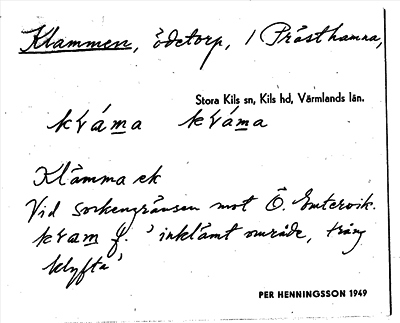 Klammen, ödetorp, 1 Prästhamna,
Stora Kils sn, Kils hd, Värmlands län.
kváma kváma
Klämma ek
Vid sockengränsen mot Ö. Emtervik.
kvam f. 'inklämt område, trång
klyfta'
PER HENNINGSSON 1949